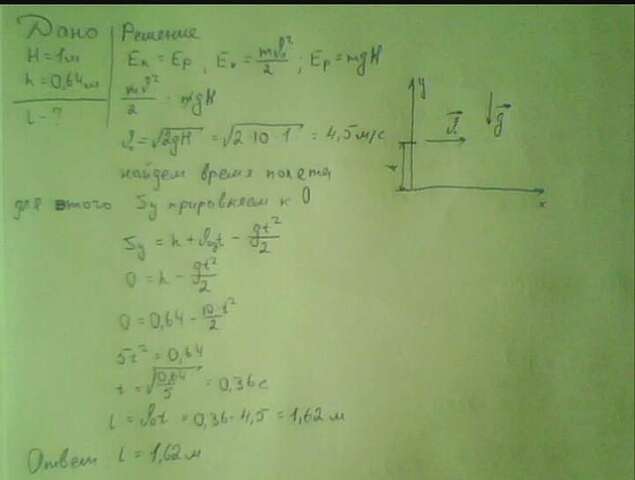 Дано
H = 1 м
h = 0,64 м
L - ?
Решение
Eк = Ep, Eк = mυ₀²/2; Ep = mgH
mυ²/2 = mgH
υ₀ = √2gH = √2·10·1 = 4,5 м/с
найдем время полета
для этого Sy приравняем к 0
Sy = h + υ₀yt - gt²/2
0 = h - gt²/2
0 = 0,64 - 10·t²/2
5t² = 0,64
t = √0,64/5 = 0,36 с
L = υ₀t = 0,36·4,5 = 1,62 м
Ответ L = 1,62 м
y
υ₀
g
x